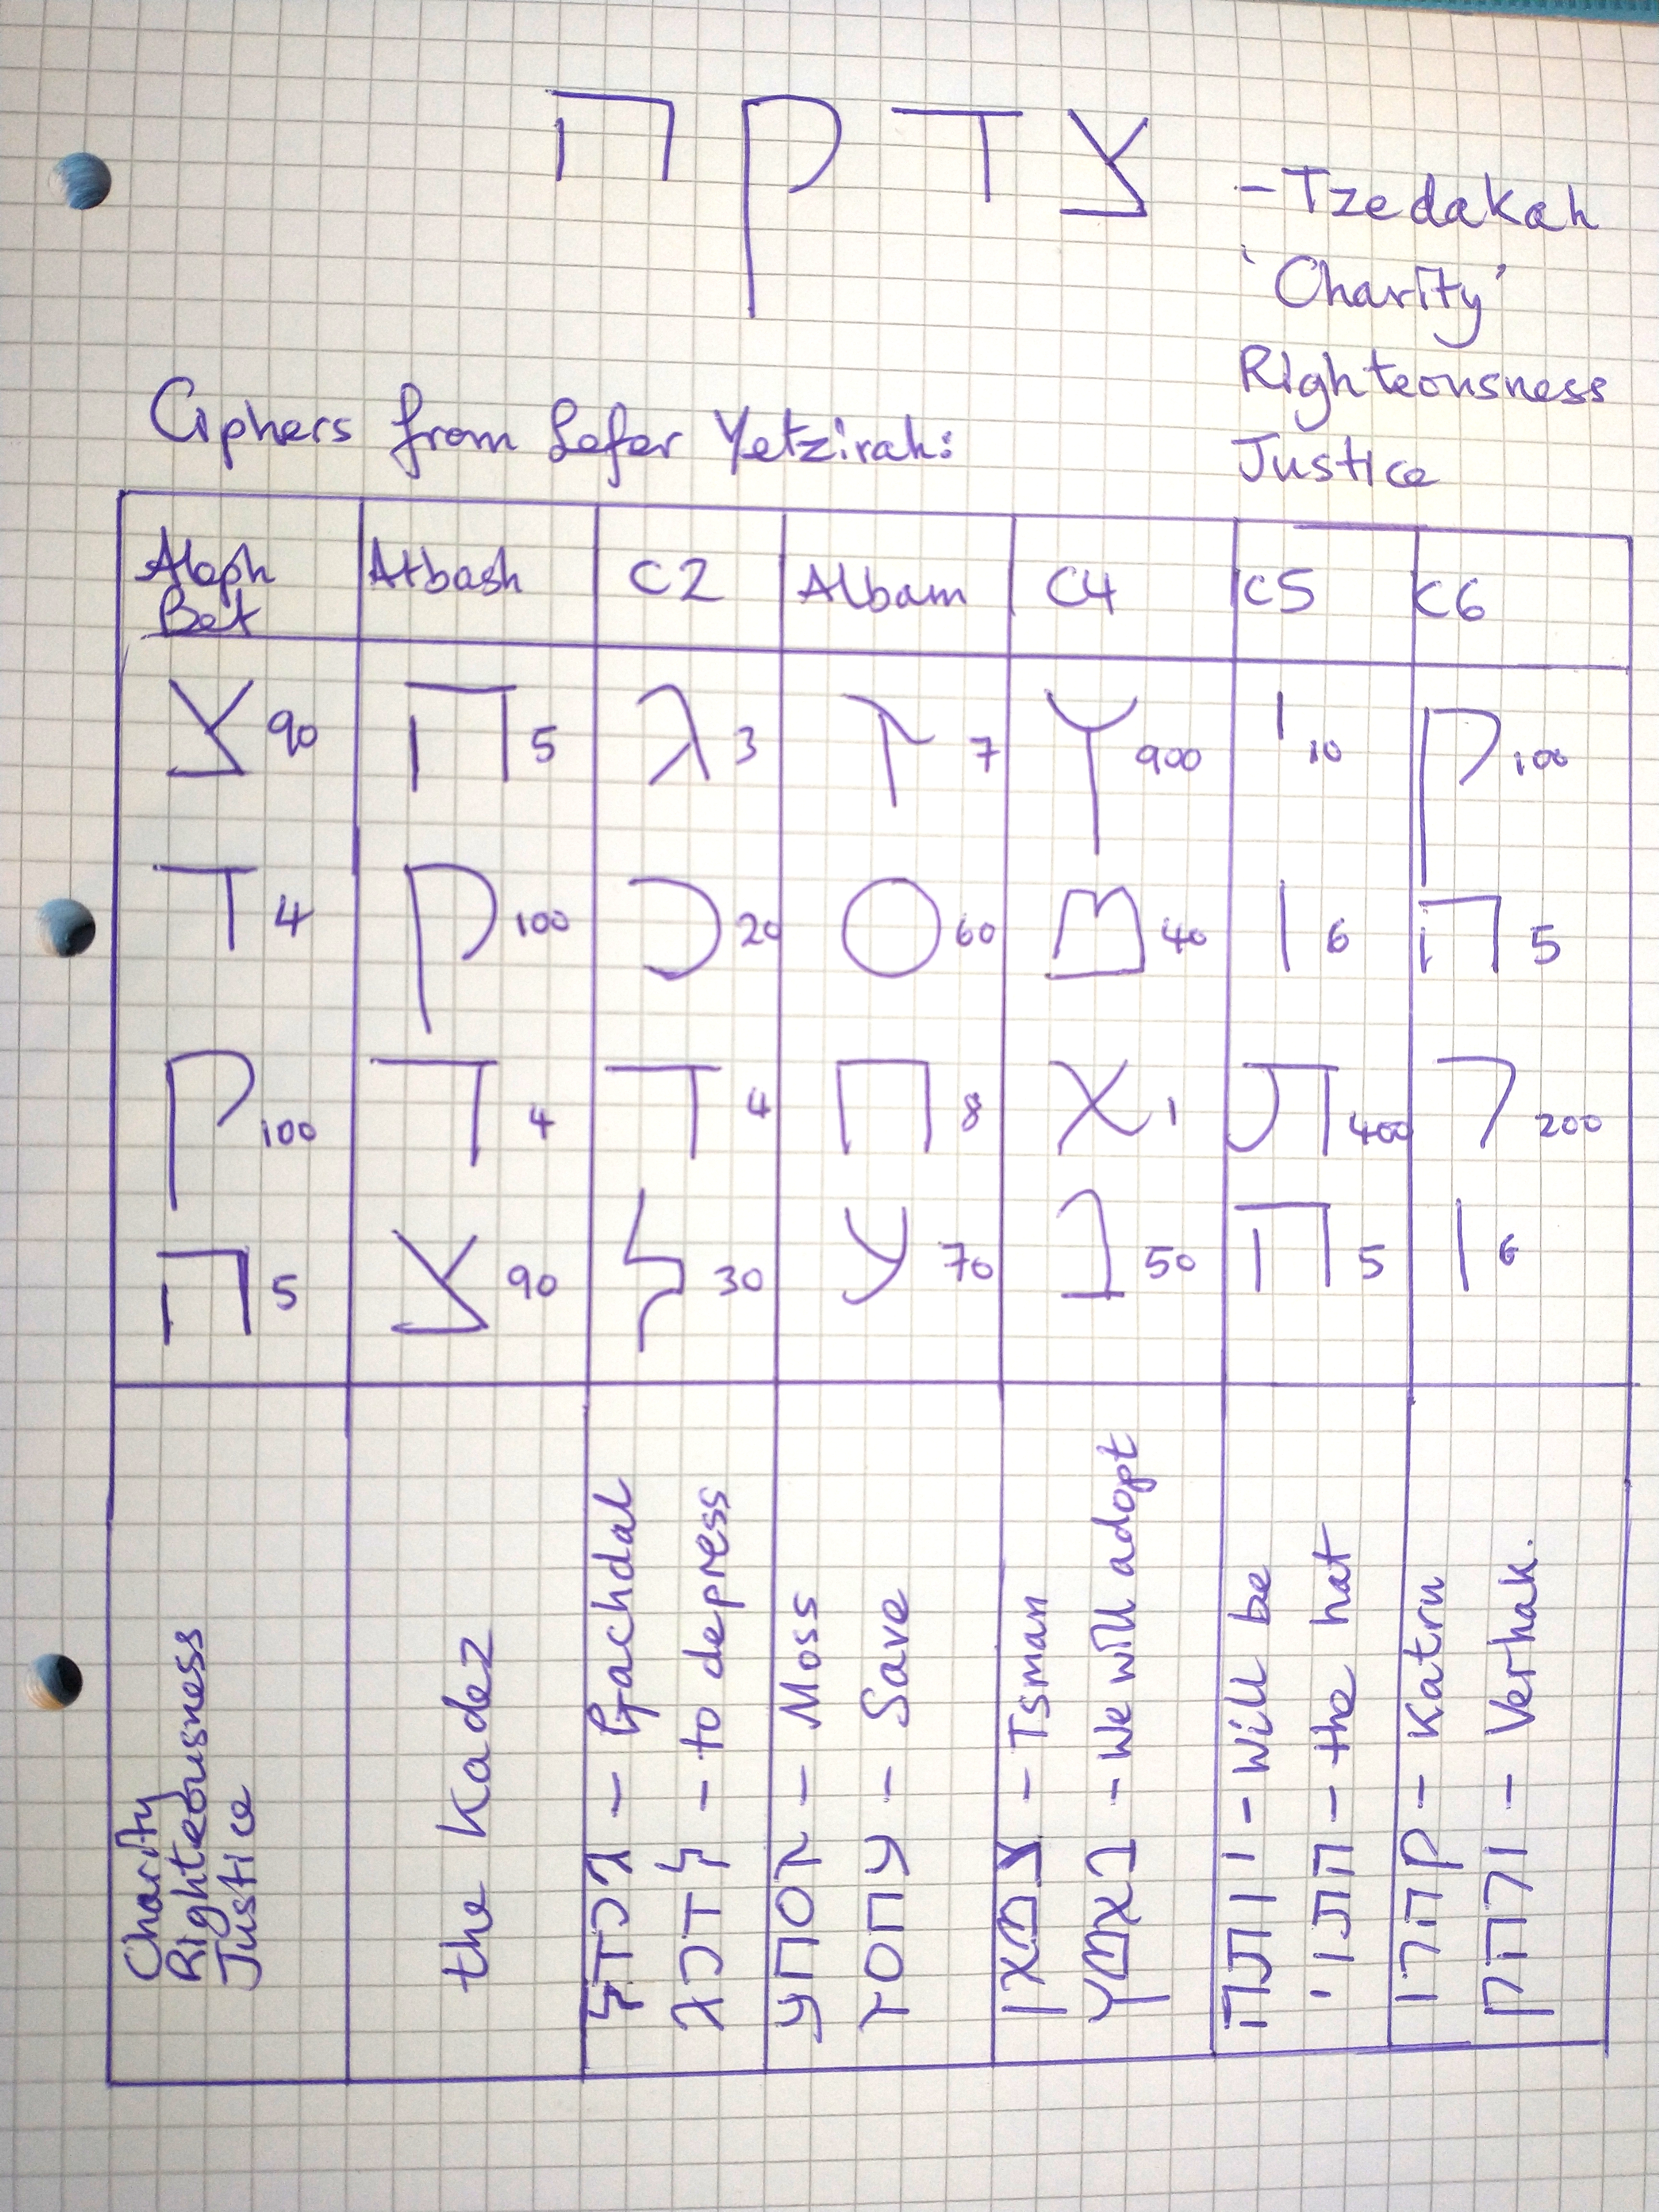 צדקה
- Tzedakah
'Charity'
Righteousness
Justice
Ciphers from Sefer Yetzirah:
Aleph Bet Atbash C2 Albam C4 C5 C6
צ 90 ה 5 ג 3 ז 7 ץ 900 י 10 ק 100
ד 4 ק 100 כ 20 ס 60 מ 40 ו 6 ה 5
ק 100 ד 4 ד 4 ח 8 א 1 ת 400 ר 200
ה 5 צ 90 ל 30 ע 70 נ 50 ה 5 ו 6
Charity
Righteousness
Justice
the Kadez
גכדל - Gachdal
לדכג - to depress
זסחע - Moss
עחסז - Save
צמאן - Tsman
נאמץ - We will adopt
יותה - Will be
התוי - the hat
קהרו - Katru
ורהק - Verhak.